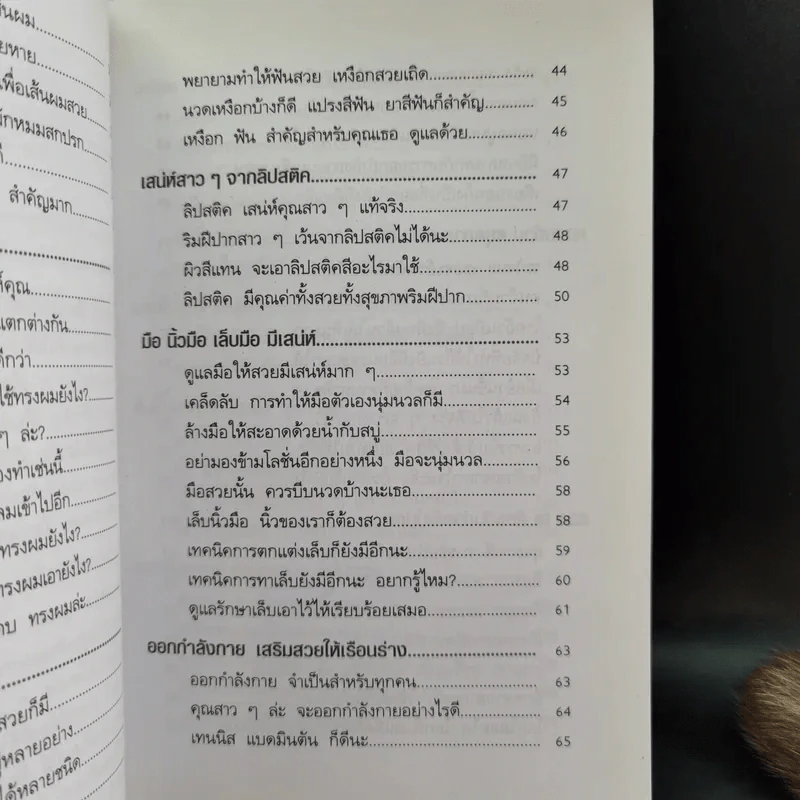 นผม
ยหาย
เพื่อเส้นผมสวย
ักหมมสกปรก
ดี
สำคัญมาก
ห์คุณ
แตกต่างกัน
ดีกว่า
ใช้ทรงผมยังไง?
ๆ ล่ะ?
องทำเช่นนี้
ลมเข้าไปอีก
ทรงผมยังไง?
ทรงผมเอายังไง?
บ ทรงผมล่ะ
สวยก็มี
หลายอย่าง
ได้หลายชนิด
พยายามทำให้ฟันสวย เหงือกสวยเถิด 44
นวดเหงือกบ้างก็ดี แปรงสีฟัน ยาสีฟันก็สำคัญ 45
เหงือก ฟัน สำคัญสำหรับคุณเธอ ดูแลด้วย 46
เสน่ห์สาว ๆ จากลิปสติค 47
ลิปสติค เสน่ห์คุณสาว ๆ แท้จริง 47
ริมฝีปากสาว ๆ เว้นจากลิปสติคไม่ได้นะ 48
ผิวสีแทน จะเอาลิปสติคสีอะไรมาใช้ 48
ลิปสติค มีคุณค่าทั้งสวยทั้งสุขภาพริมฝีปาก 50
มือ นิ้วมือ เล็บมือ มีเสน่ห์ 53
ดูแลมือให้สวยมีเสน่ห์มาก ๆ 53
เคล็ดลับ การทำให้มือตัวเองนุ่มนวลก็มี 54
ล้างมือให้สะอาดด้วยน้ำกับสบู่ 55
อย่ามองข้ามโลชั่นอีกอย่างหนึ่ง มือจะนุ่มนวล 56
มือสวยนั้น ควรบีบนวดบ้างนะเธอ 58
เล็บนิ้วมือ นิ้วของเราก็ต้องสวย 58
เทคนิคการตกแต่งเล็บก็ยังมีอีกนะ 59
เทคนิคการทาเล็บยังมีอีกนะ อยากรู้ไหม? 60
ดูแลรักษาเล็บเอาไว้ให้เรียบร้อยเสมอ 61
ออกกำลังกาย เสริมสวยให้เรือนร่าง 63
ออกกำลังกาย จำเป็นสำหรับทุกคน 63
คุณสาว ๆ ล่ะ จะออกกำลังกายอย่างไรดี 64
เทนนิส แบดมินตัน ก็ดีนะ 65